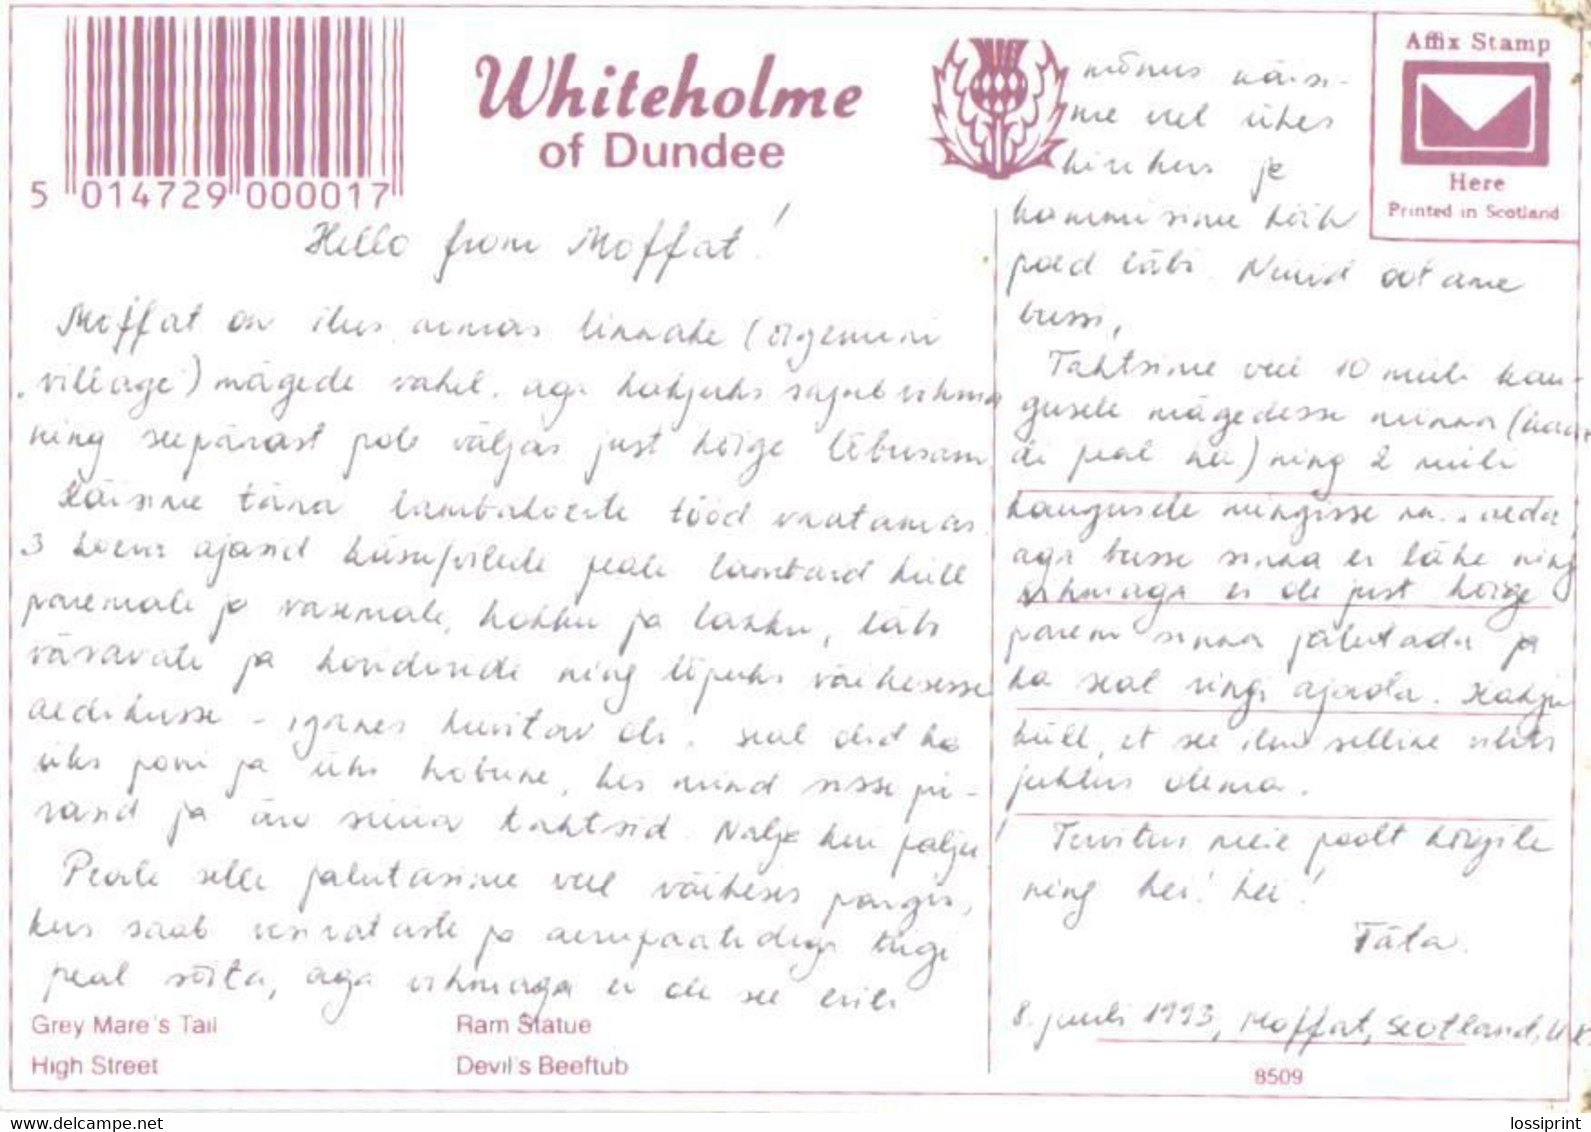 5 014729 000017
Whiteholme
of Dundee
Affix Stamp
Here
Printed in Scotland
Hello from Moffat!
Moffat on ilus armas linnake (õigemini
"village") mägede vahel, aga kahjuks sajab vihma
ning seepärast pole väljas just kõige lõbusam.
Käisime täna lambakoerte tööd vaatamas.
3 koera ajasid käsu/vilede peale lambaid küll
paremale ja vasemale, kokku ja lahku, läbi
väravate ja koridoride ning lõpuks väikesesse
aedikusse - igines huvitav oli. Seal olid ka
üks poni ja üks hobune, kes mind sisse pi-
rasid ja ära süüa tahtsid. Nalja kui palju!
Peale selle jalutasime veel väikeses pargis,
kus saab vesirataste ja aerupaatidega tiigi
peal sõita, aga vihmaga ei ole see eriti
mõnus. Käisi-
me veel ühes
kirikus ja
kammisime kõik
poed läbi. Nüüd ootame
bussi.
Tahtsime veel 10 miili kau-
gusele mägedesse minna (kaar-
di peal nei) ning 2 miili
kaugusele mingisse aeda,
aga busse sinna ei lähe ning
vihmaga ei ole just kõige
parem sinna jalutada ja
ka seal ringi ajada. Kahju
küll, et see ilm selline vihts
juhtus olema.
Tervitus meie poolt kõigile
ning hei! hei!
Täta.
8. juuli 1993, Moffat, Scotland, UK
Grey Mare's Tail
Ram Statue
High Street
Devil's Beeftub
8509
www.delcampe.net
lossiprint